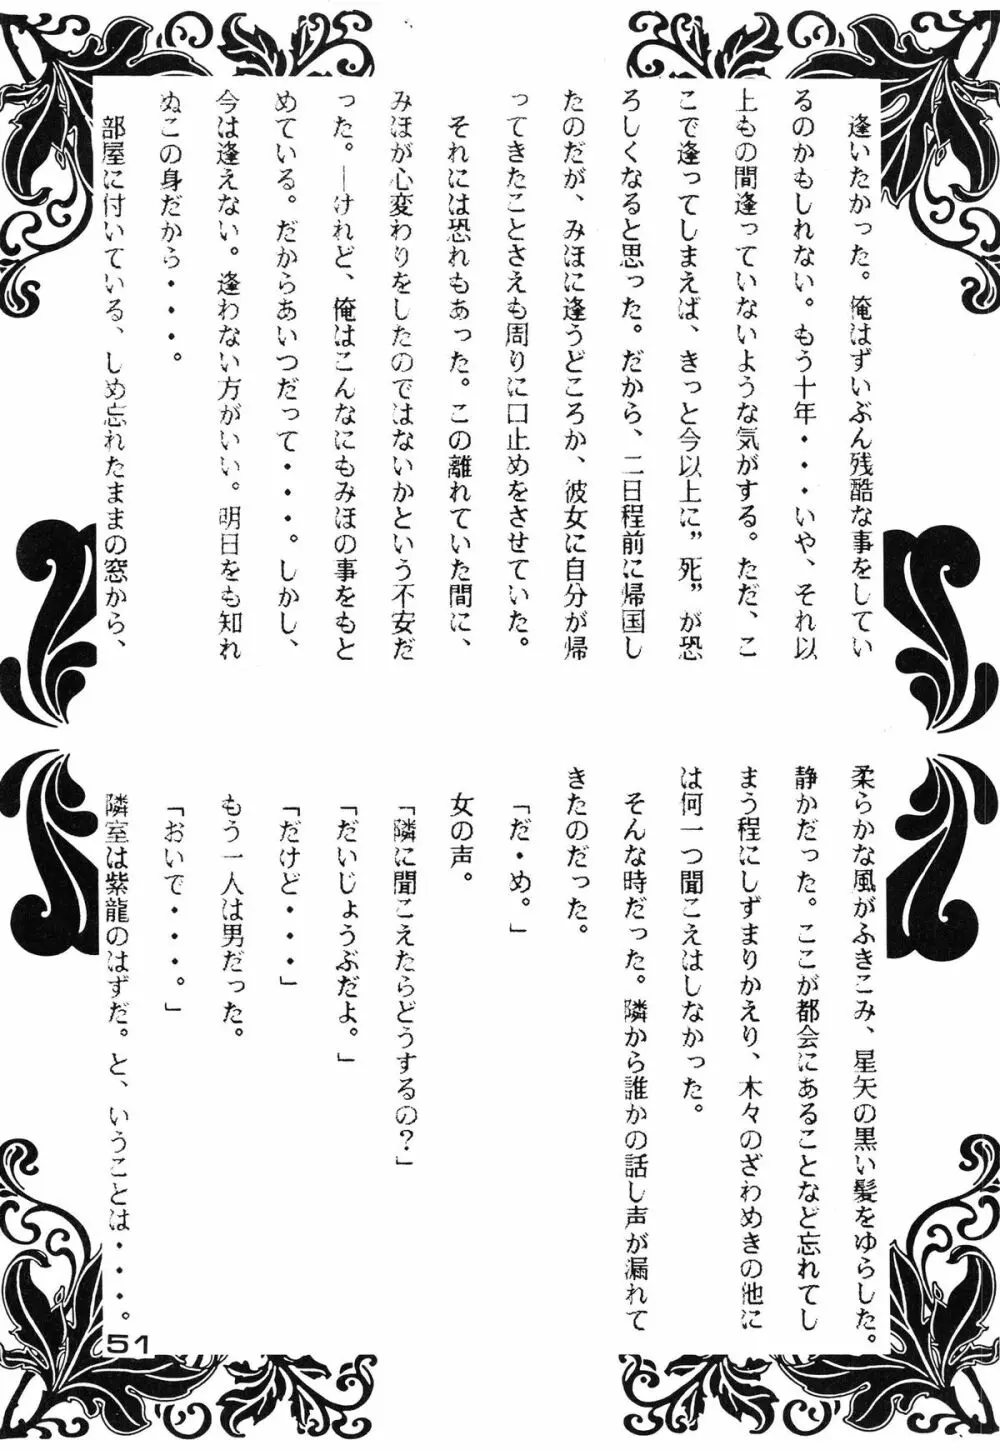 逢いたかった。俺はずいぶん残酷な事をしてい
るのかもしれない。もう十年・・・いや、それ以
上もの間逢っていないような気がする。ただ、こ
こで逢ってしまえば、きっと今以上に”死”が恐
ろしくなると思った。だから、二日程前に帰国し
たのだが、みほに逢うどころか、彼女に自分が帰
ってきたことさえも周りに口止めをさせていた。
　それには恐れもあった。この離れていた間に、
みほが心変わりをしたのではないかという不安だ
った。―けれど、俺はこんなにもみほの事をもと
めている。だからあいつだって・・・。しかし、
今は逢えない。逢わない方がいい。明日をも知れ
ぬこの身だから・・・。
　部屋に付いている、しめ忘れたままの窓から、
柔らかな風がふきこみ、星矢の黒い髪をゆらした。
静かだった。ここが都会にあることなど忘れてし
まう程にしずまりかえり、木々のざわめきの他に
は何一つ聞こえはしなかった。
　そんな時だった。隣から誰かの話し声が漏れて
きたのだった。
　「だ・め。」
　女の声。
　「隣に聞こえたらどうするの？」
　「だいじょうぶだよ。」
　「だけど・・・」
　もう一人は男だった。
　「おいで・・・。」
　隣室は紫龍のはずだ。と、いうことは・・・。
51